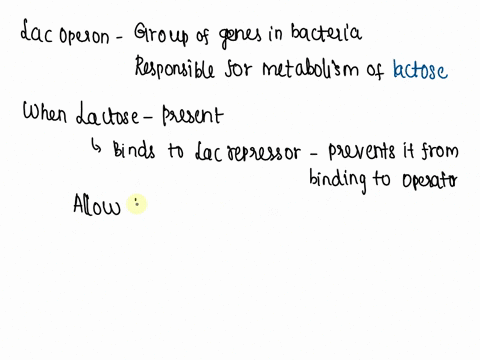 Lac operon - Group of genes in bacteria
Responsible for metabolism of lactose
When Lactose - Present
↳ Binds to Lac repressor - prevents it from
binding to operator
Allow